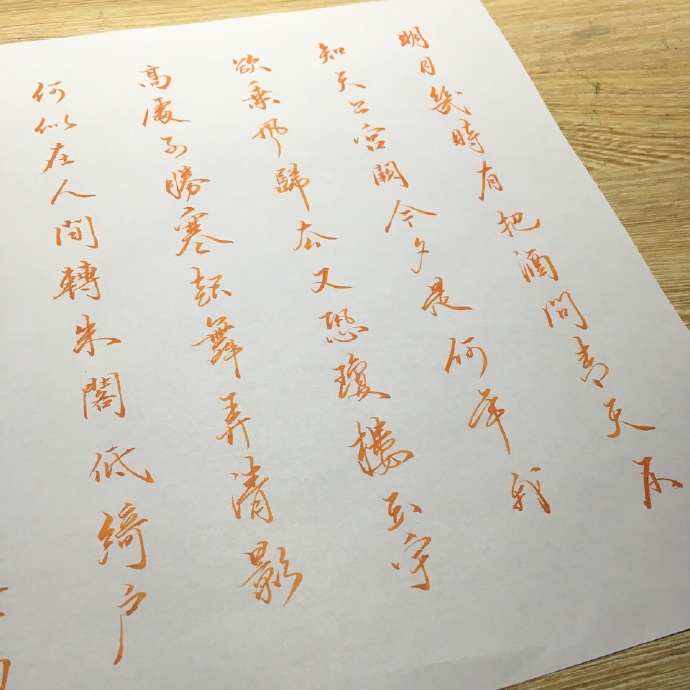 明月幾時有把酒問青天不
知天上宮闕今夕是何年我
欲乘風歸去又恐瓊樓玉宇
高處不勝寒起舞弄清影
何似在人間轉朱閣低綺户